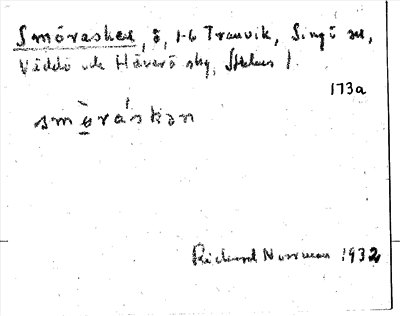 Smöraskär, ö, 1-6 Tranvik, Singö sn,
Väddö och Häverö skg, Sthlms l.
173a
smö̀ráskən
Richard Norrman 1932